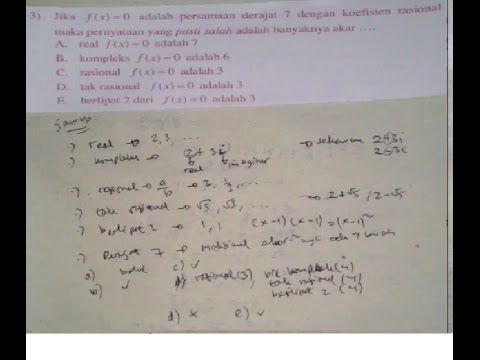 3) Jika f(x) = 0 adalah persamaan derajat 7 dengan koefisien rasional
maka pernyataan yang pasti salah adalah banyaknya akar ....
A. real f(x) = 0 adalah 7
B. kompleks f(x) = 0 adalah 6
C. rasional f(x) = 0 adalah 3
D. tak rasional f(x) = 0 adalah 3
E. berlipat 2 dari f(x) = 0 adalah 3
.) real → 2, 3, ...
.) kompleks → 2 + 3i → sekawan 2+3i
real imaginer 2-3i
.) rasional → a/b → 2, 1/2, ...
.) tak rasional → √5, √2, ... → 2+√5 / 2-√5
.) berlipat 2 → 1, 1 (x-1)(x-1) = (x-1)²
.) Derajat 7 → maksimal akar-nya ada 7 buah
a) betul c) ✓
b) ✓ d) rasional (3), kompleks (4)
tak rasional (4)
berlipat 2 (4)
d) × e) ✓